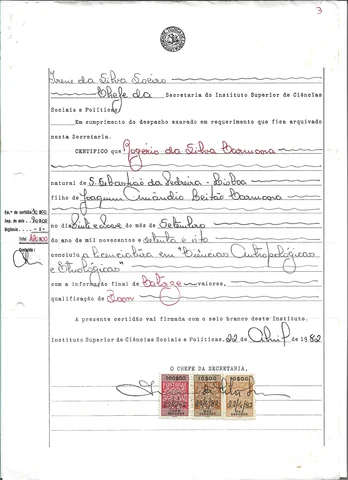 3
Irene da Silva Soeiro
Chefe da Secretaria do Instituto Superior de Ciências
Sociais e Políticas,
Em cumprimento do despacho exarado em requerimento que fica arquivado
nesta Secretaria.
CERTIFICO que Rogério da Silva Barmoora
natural de S. Sebastião da Pedreira - Lisboa
filho de Joaquim Amândio Beitão Barmoora
no dia vinte e nove do mês de Setembro
do ano de mil novecentos e setenta e oito
concluiu a licenciatura em "Ciências Antropológicas
e Etnológicas"
com a informação final de Catorze valores,
qualificação de Bom
A presente certidão vai firmada com o selo branco deste Instituto.
Instituto Superior de Ciências Sociais e Políticas, 22 de Abril de 1982
O CHEFE DA SECRETARIA,
10$00 10$00 10$00